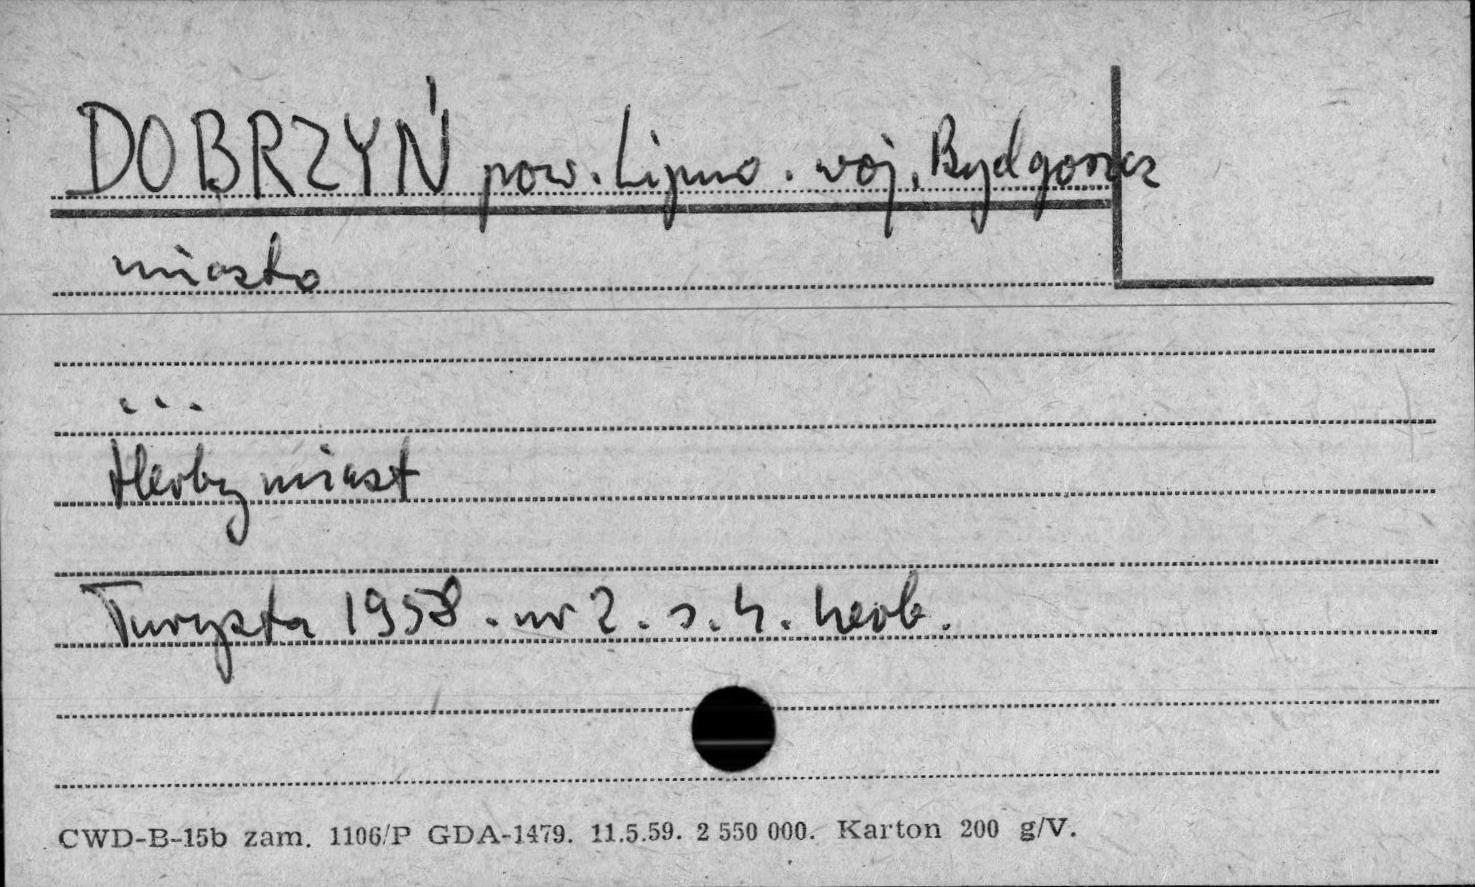 DOBRZYŃ pow. Lipno. woj. Bydgoszcz
miasto
...
Herby miast
Turysta 1958. nr 2. s. 4. herb.
CWD-B-15b zam. 1106/P GDA-1479. 11.5.59. 2 550 000. Karton 200 g/V.